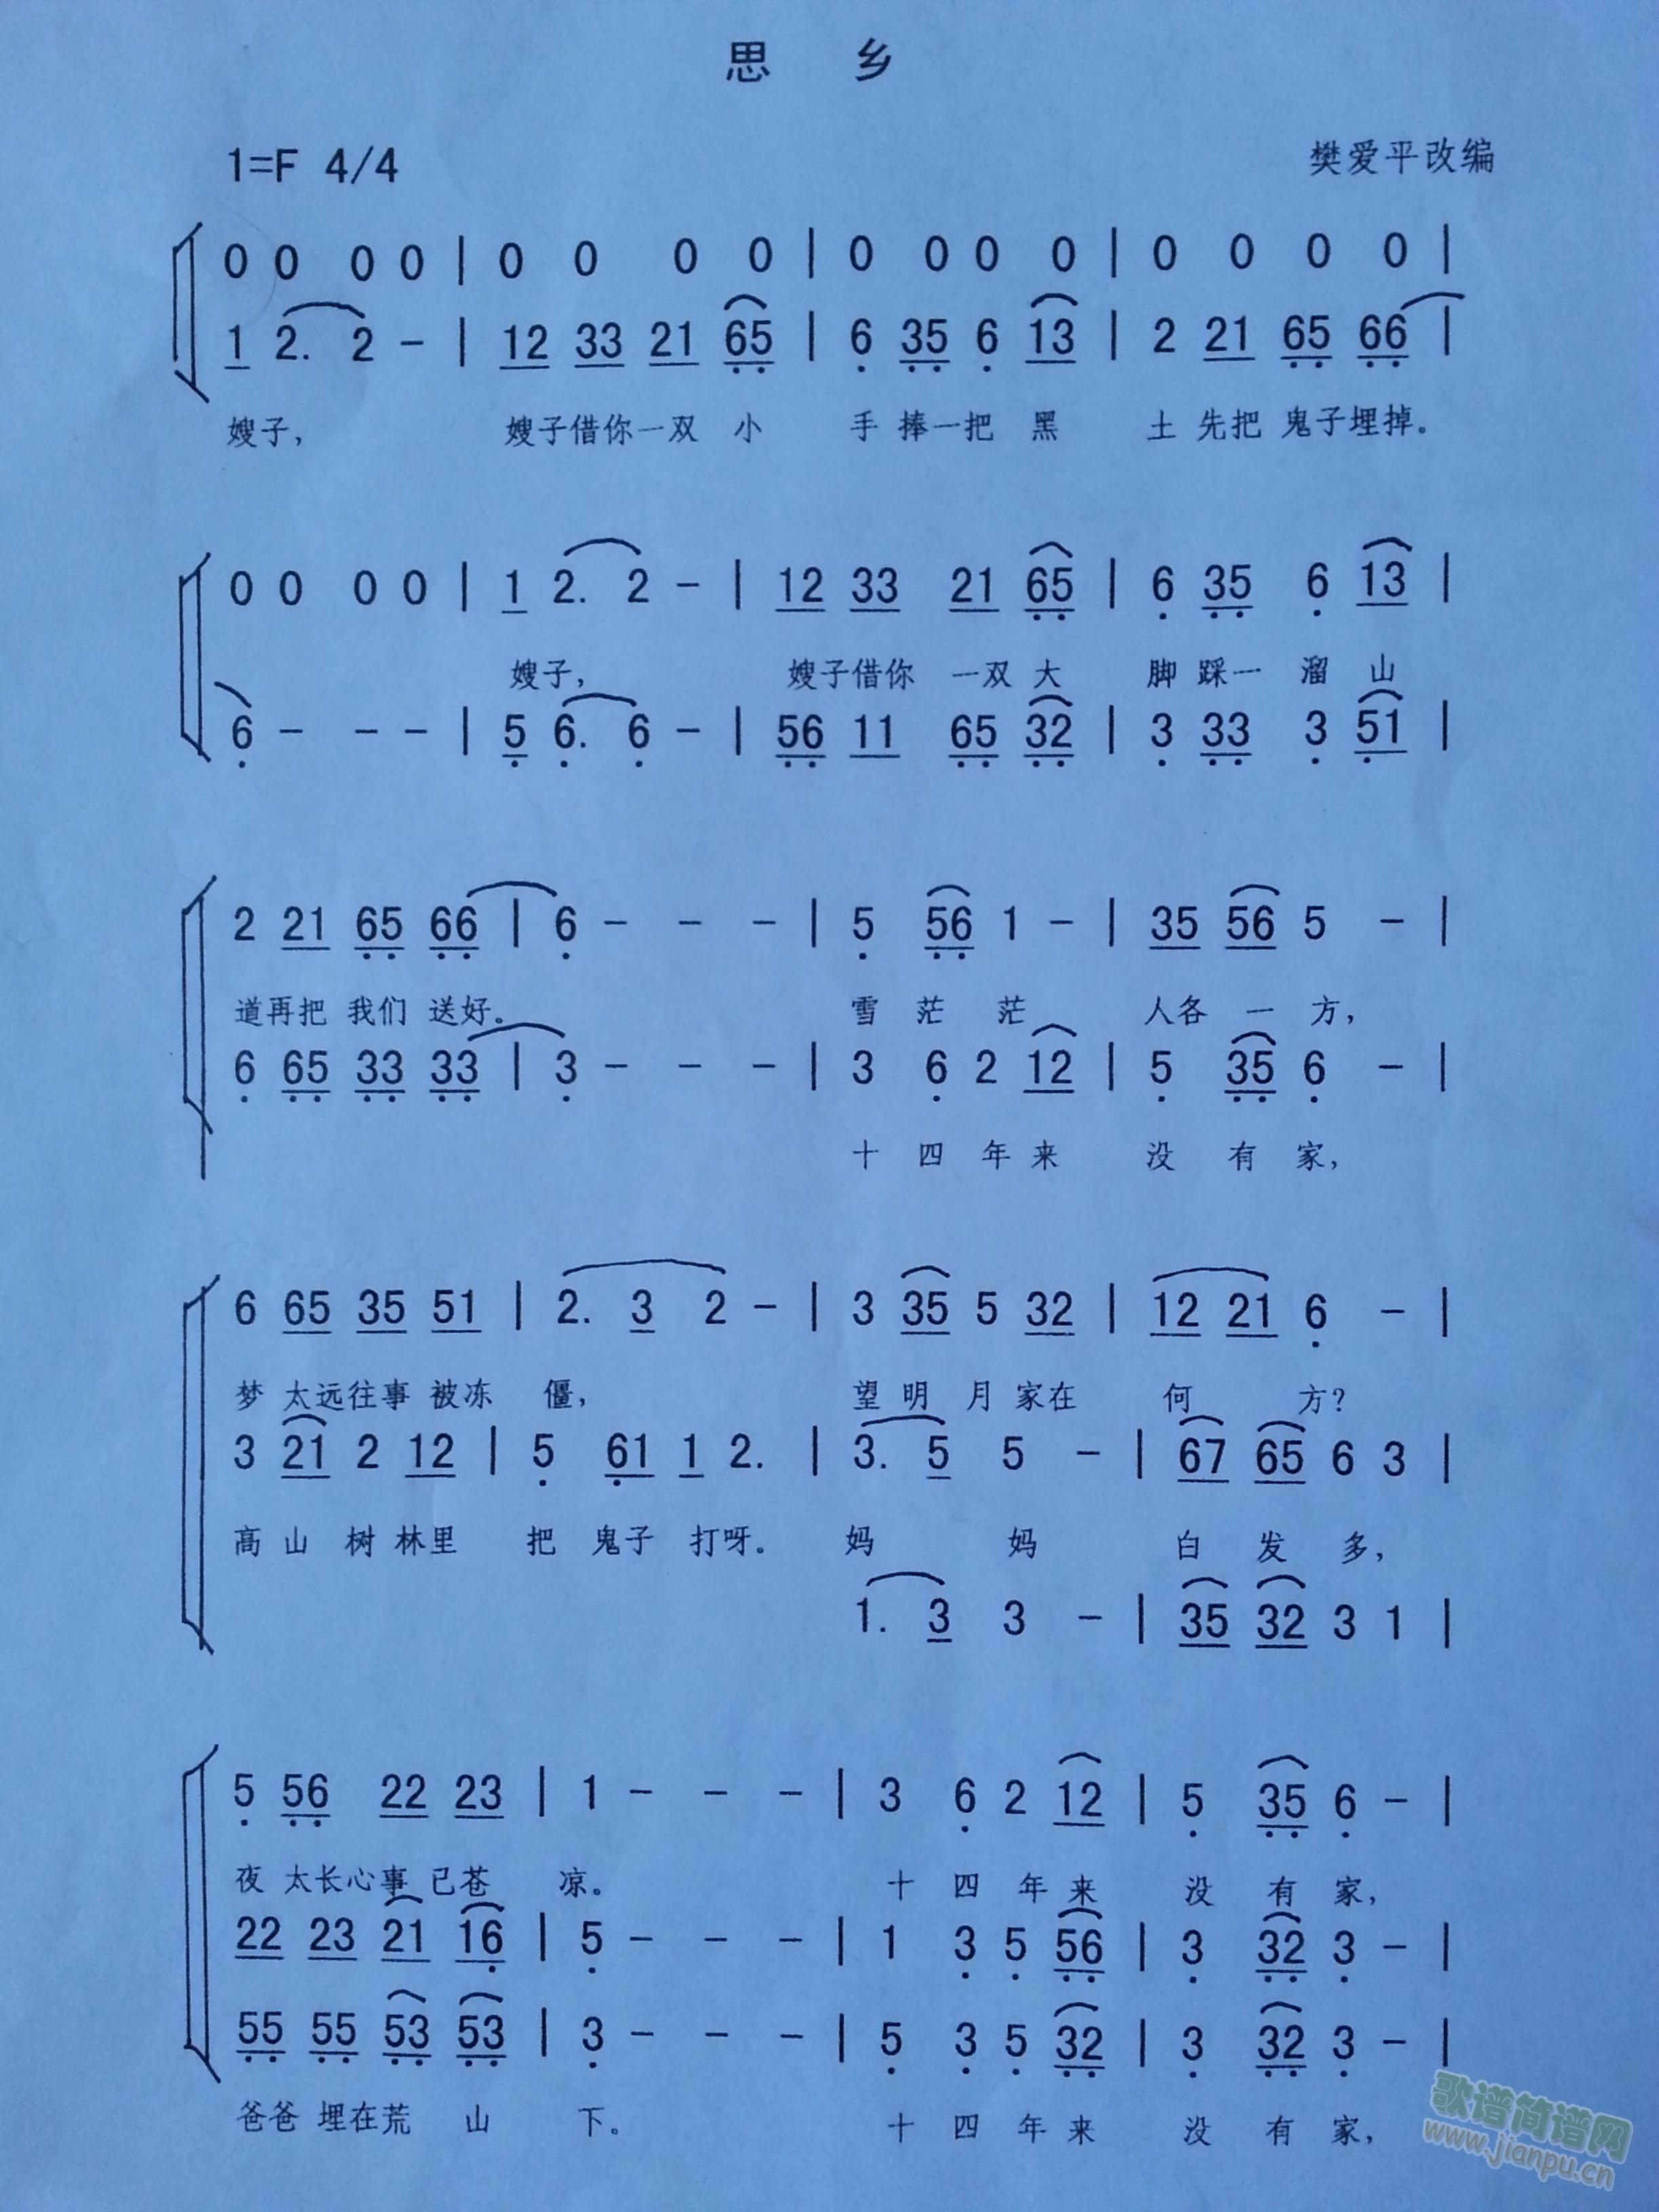 思 乡
1=F 4/4
樊爱平改编
0 0 0 0 | 0 0 0 0 | 0 0 0 0 | 0 0 0 0 |
1 2. 2 - | 12 33 21 65 | 6 35 6 13 | 2 21 65 66 |
嫂子, 嫂子借你一双 小 手 捧一把 黑 土 先把 鬼子埋掉。
0 0 0 0 | 1 2. 2 - | 12 33 21 65 | 6 35 6 13 |
嫂子, 嫂子借你 一双 大 脚 踩一 溜 山
6 - - - | 5 6. 6 - | 56 11 65 32 | 3 33 3 51 |
2 21 65 66 | 6 - - - | 5 56 1 - | 35 56 5 - |
道再把 我们 送好。 雪 茫 茫 人各 一 方,
6 65 33 33 | 3 - - - | 3 6 2 12 | 5 35 6 - |
十 四 年 来 没 有 家,
6 65 35 51 | 2. 3 2 - | 3 35 5 32 | 12 21 6 - |
梦 太远往事 被冻 僵, 望 明 月 家在 何 方?
3 21 2 12 | 5 61 1 2. | 3. 5 5 - | 67 65 6 3 |
高 山 树 林里 把 鬼子 打呀。 妈 妈 白 发 多,
1. 3 3 - | 35 32 3 1 |
5 56 22 23 | 1 - - - | 3 6 2 12 | 5 35 6 - |
夜 太长心事 已苍 凉。 十 四 年 来 没 有 家,
22 23 21 16 | 5 - - - | 1 3 5 56 | 3 32 3 - |
55 55 53 53 | 3 - - - | 5 3 5 32 | 3 32 3 - |
爸爸 埋在荒 山 下。 十 四 年 来 没 有 家,
歌谱简谱网
www.jianpu.cn